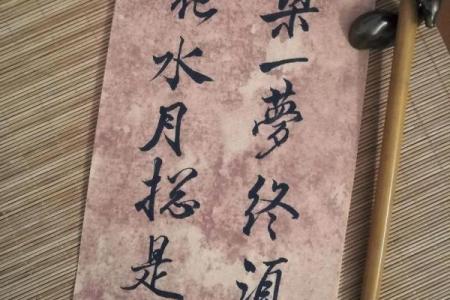 粱一夢終須
花水月捴是